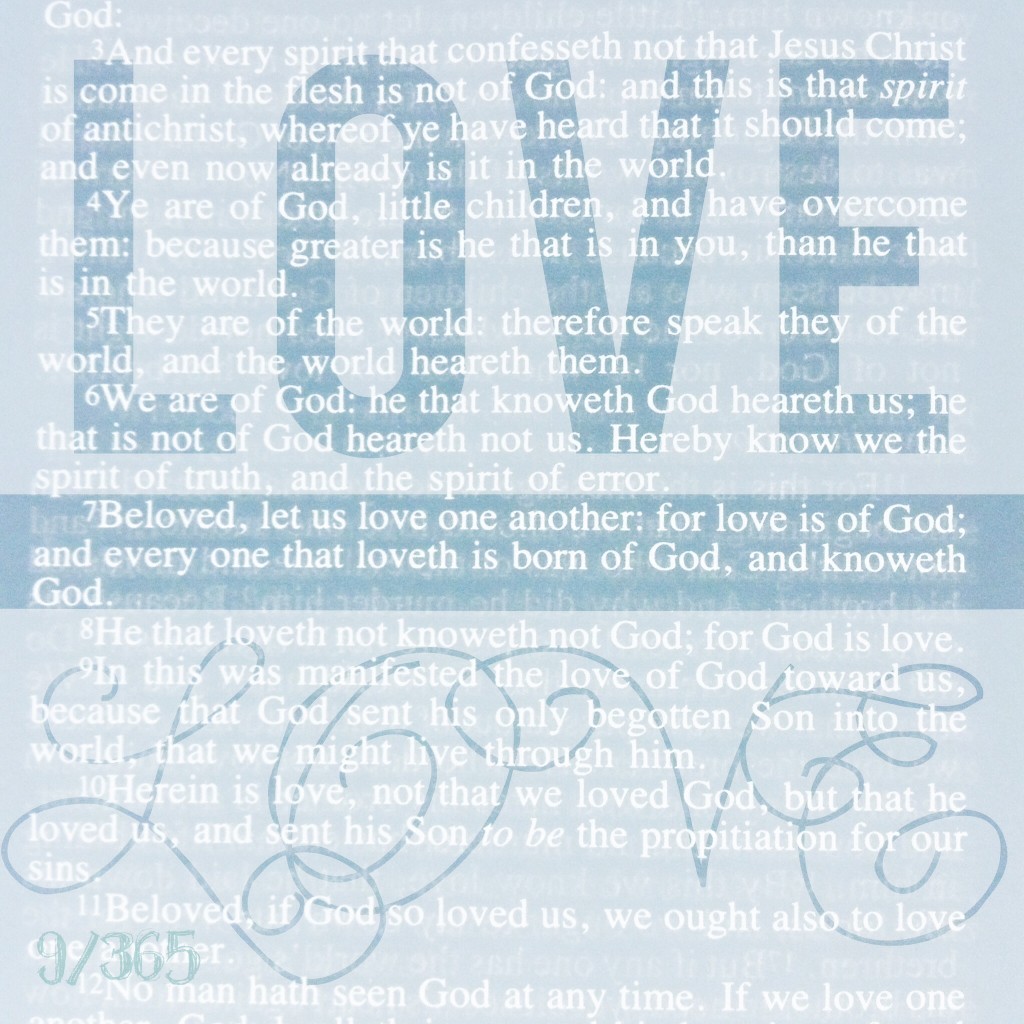 God:
3And every spirit that confesseth not that Jesus Christ
is come in the flesh is not of God: and this is that spirit
of antichrist, whereof ye have heard that it should come;
and even now already is it in the world.
4Ye are of God, little children, and have overcome
them: because greater is he that is in you, than he that
is in the world.
5They are of the world: therefore speak they of the
world, and the world heareth them.
6We are of God: he that knoweth God heareth us; he
that is not of God heareth not us. Hereby know we the
spirit of truth, and the spirit of error.
LOVE
7Beloved, let us love one another: for love is of God;
and every one that loveth is born of God, and knoweth
God.
8He that loveth not knoweth not God; for God is love.
9In this was manifested the love of God toward us,
because that God sent his only begotten Son into the
world, that we might live through him.
10Herein is love, not that we loved God, but that he
loved us, and sent his Son to be the propitiation for our
sins.
LOVE
11Beloved, if God so loved us, we ought also to love
one another.
9/365
12No man hath seen God at any time. If we love one
another, God